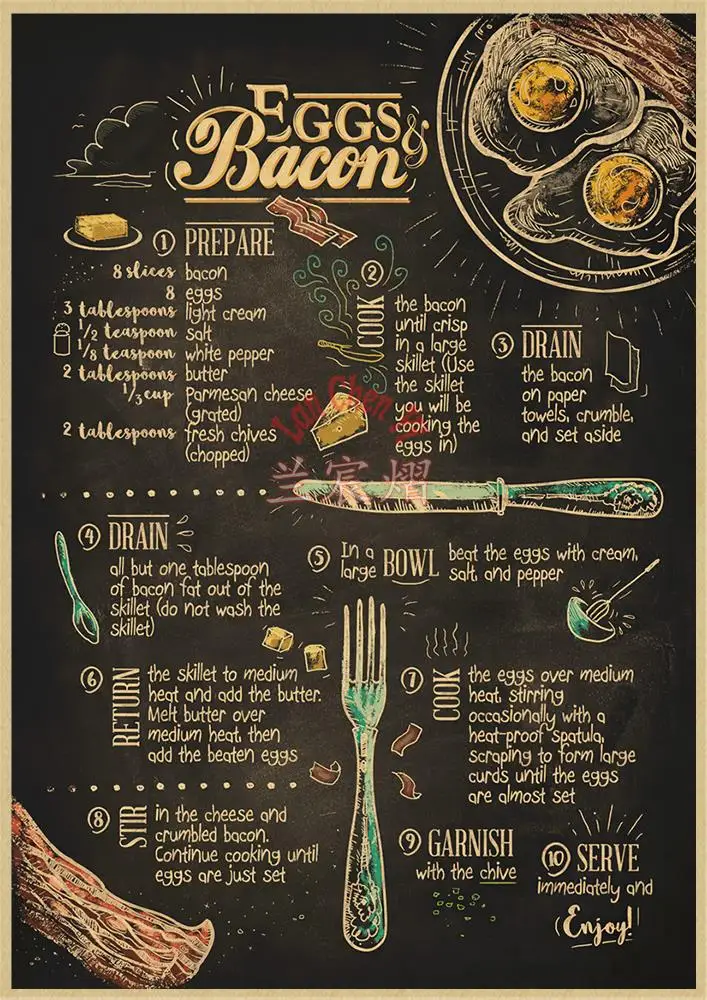 EGGS &
Bacon
1 PREPARE
8 slices bacon
8 eggs
3 tablespoons light cream
1/2 teaspoon salt
1/8 teaspoon white pepper
2 tablespoons butter
1/3 cup Parmesan cheese
(grated)
2 tablespoons fresh chives
(chopped)
2 COOK
the bacon
until crisp
in a large
skillet (Use
the skillet
you will be
cooking the
eggs in)
3 DRAIN
the bacon
on paper
towels, crumble,
and set aside
Lan Chen Yi
兰宸熠
4 DRAIN
all but one tablespoon
of bacon fat out of the
skillet (do not wash the
skillet)
5 In a
large BOWL beat the eggs with cream,
salt, and pepper
6 RETURN
the skillet to medium
heat and add the butter.
Melt butter over
medium heat, then
add the beaten eggs
7 COOK
the eggs over medium
heat, stirring
occasionally with a
heat-proof spatula,
scraping to form large
curds until the eggs
are almost set
8 STIR
in the cheese and
crumbled bacon.
Continue cooking until
eggs are just set
9 GARNISH
with the chive
10 SERVE
immediately and
Enjoy!